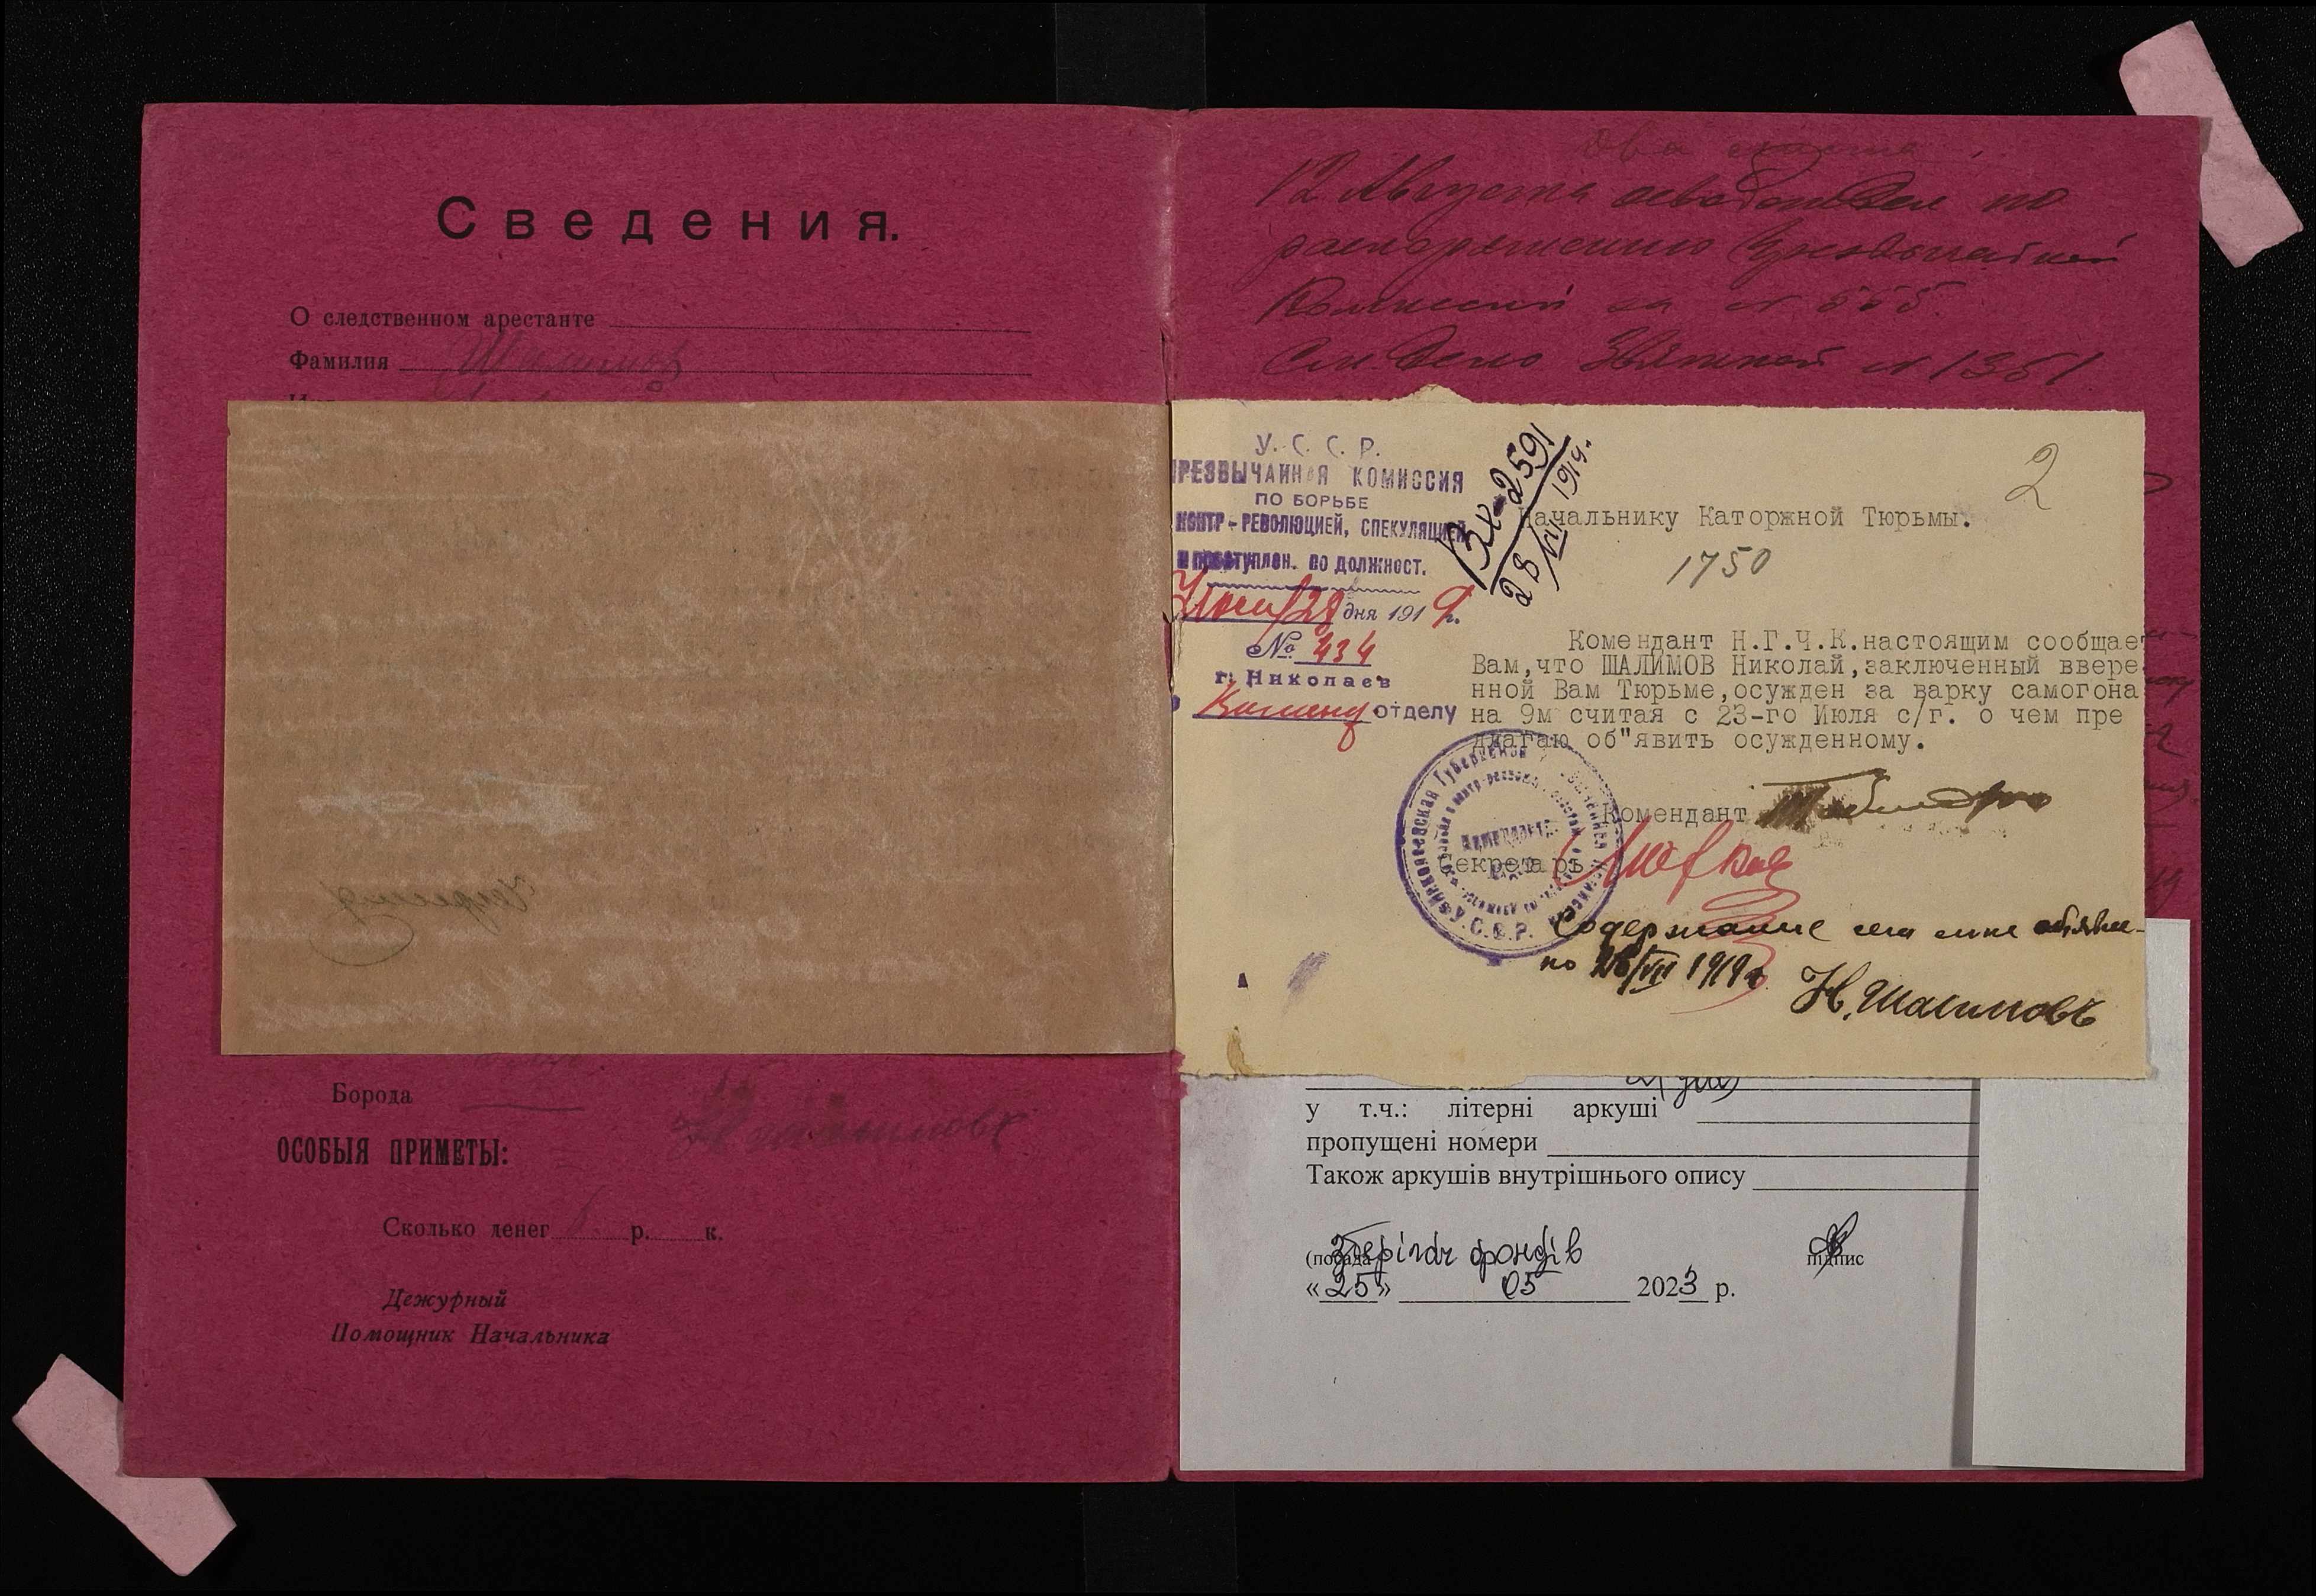 Сведения.
О следственном арестанте
Фамилия Шалимов
Борода
ОСОБЫЯ ПРИМЕТЫ:
Н Шалимовъ
Сколько денег р. к.
Дежурный
Помощник Начальника
Два листа
12 Августа освобожден по
распоряжению Чрезвычайной
Комиссии за N 555.
См. дело N 1351
У. С. С. Р.
ЧРЕЗВЫЧАЙНАЯ КОМИССИЯ
ПО БОРЬБЕ
КОНТР-РЕВОЛЮЦИЕЙ, СПЕКУЛЯЦИЕЙ
И ПРЕСТУПЛЕН. ПО ДОЛЖНОСТ.
Июля 28 дня 1919г.
№ 434
г. Николаев
Коменд отделу
Вх-2591
28/VII 1919г.
2
Начальнику Каторжной Тюрьмы.
1750
Комендант Н.Г.Ч.К.настоящим сообщает
Вам,что ШАЛИМОВ Николай,заключенный ввере
нной Вам Тюрьме,осужден за варку самогона
на 9м считая с 23-го Июля с/г. о чем пре
длагаю об"явить осужденному.
Комендант
Секретарь
Содержание сего мне объявле-
но 28/VII 1919г.
Н. Шалимовъ
у т.ч.: літерні аркуші
пропущені номери
Також аркушів внутрішнього опису
Зберігач фондів
(посада підпис
«25» 05 2023 р.